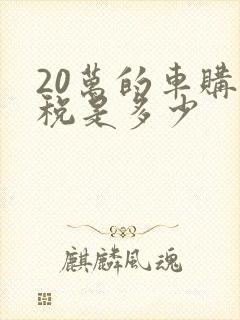 20萬的車購
稅是多少
麒麟風魂